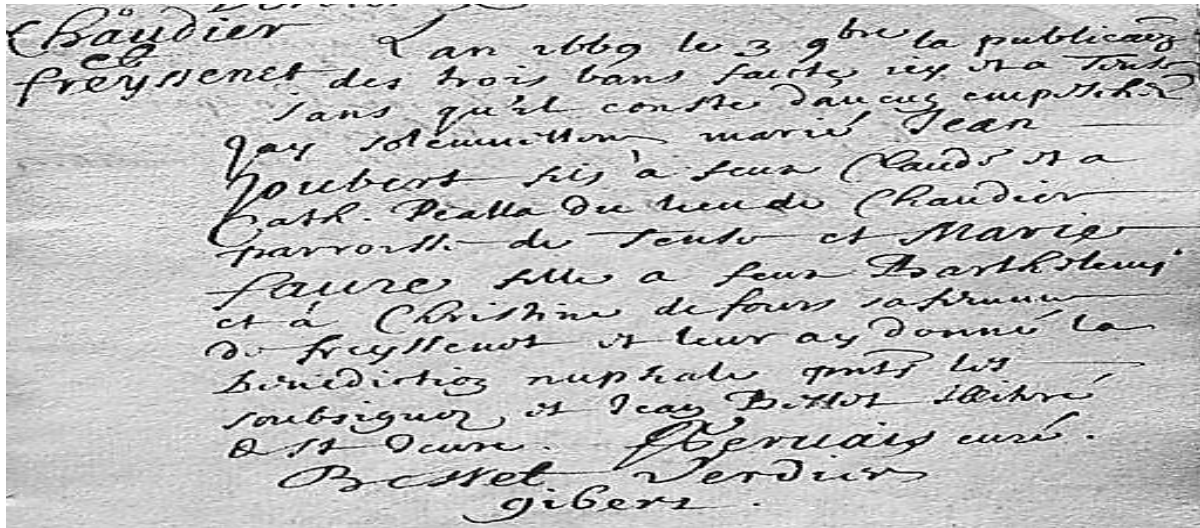 Chaudier
et
freyssenet
Lan 1669 le 3 9bre la publicaõn
des trois bans faicte icy et a Tence
sans qu'il conste d'aucun empeschemt
Jay solemnellem marié Jean
Joubert fils à feu Claude et a
Cath. Pealla du lieu de Chaudier
parroisse de Tence et Marie
faure fille a feu Barthelemi
et à Christine defours sa femme
de freyssenet et leur ay donné la
benediction nuptiale pnts les
soubsignez et Jean Bessot illitéré
de St Jeure. Gervais curé.
Besset Verdier
gibert.